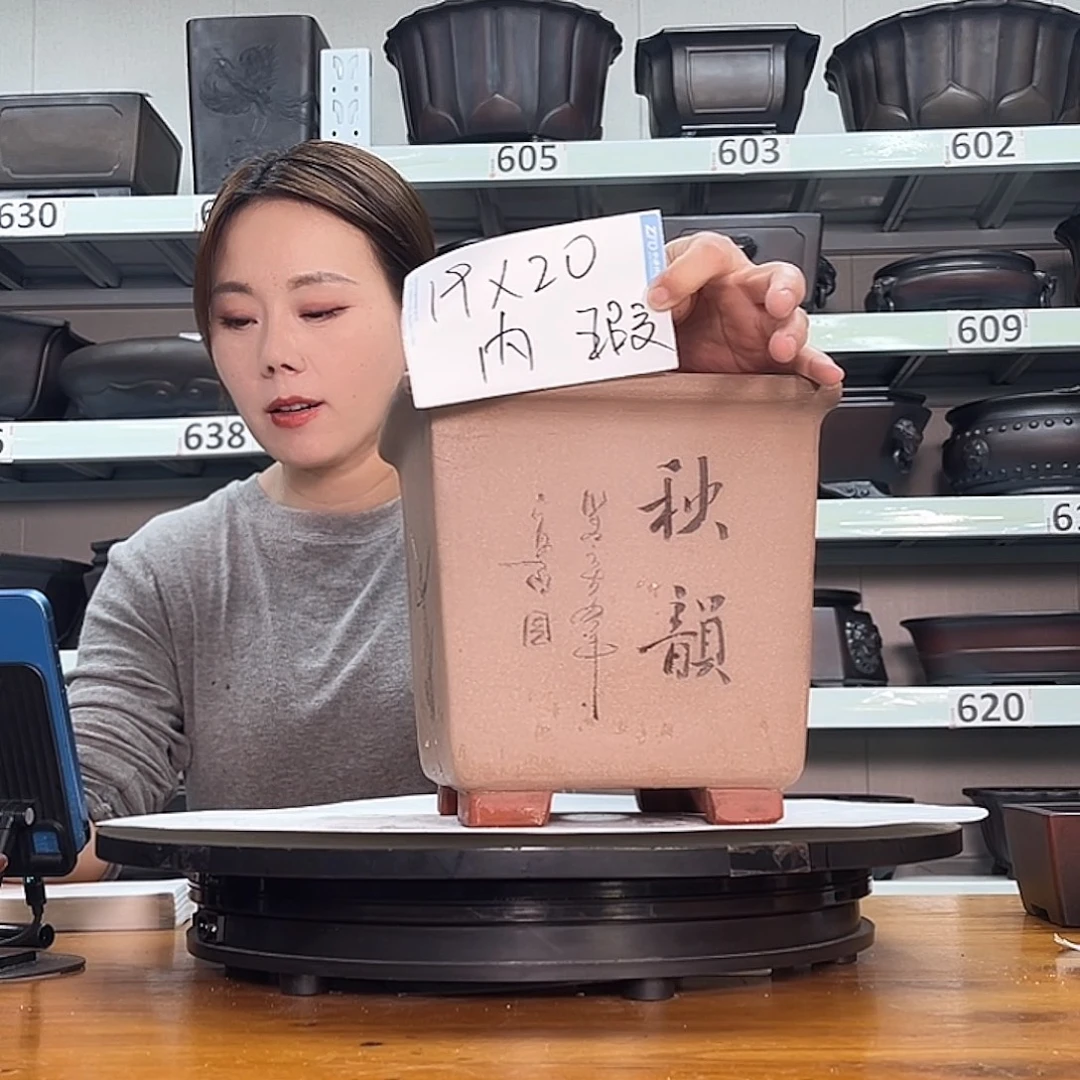 605
603
602
630
19×20
内 瑕
609
638
秋韻
620